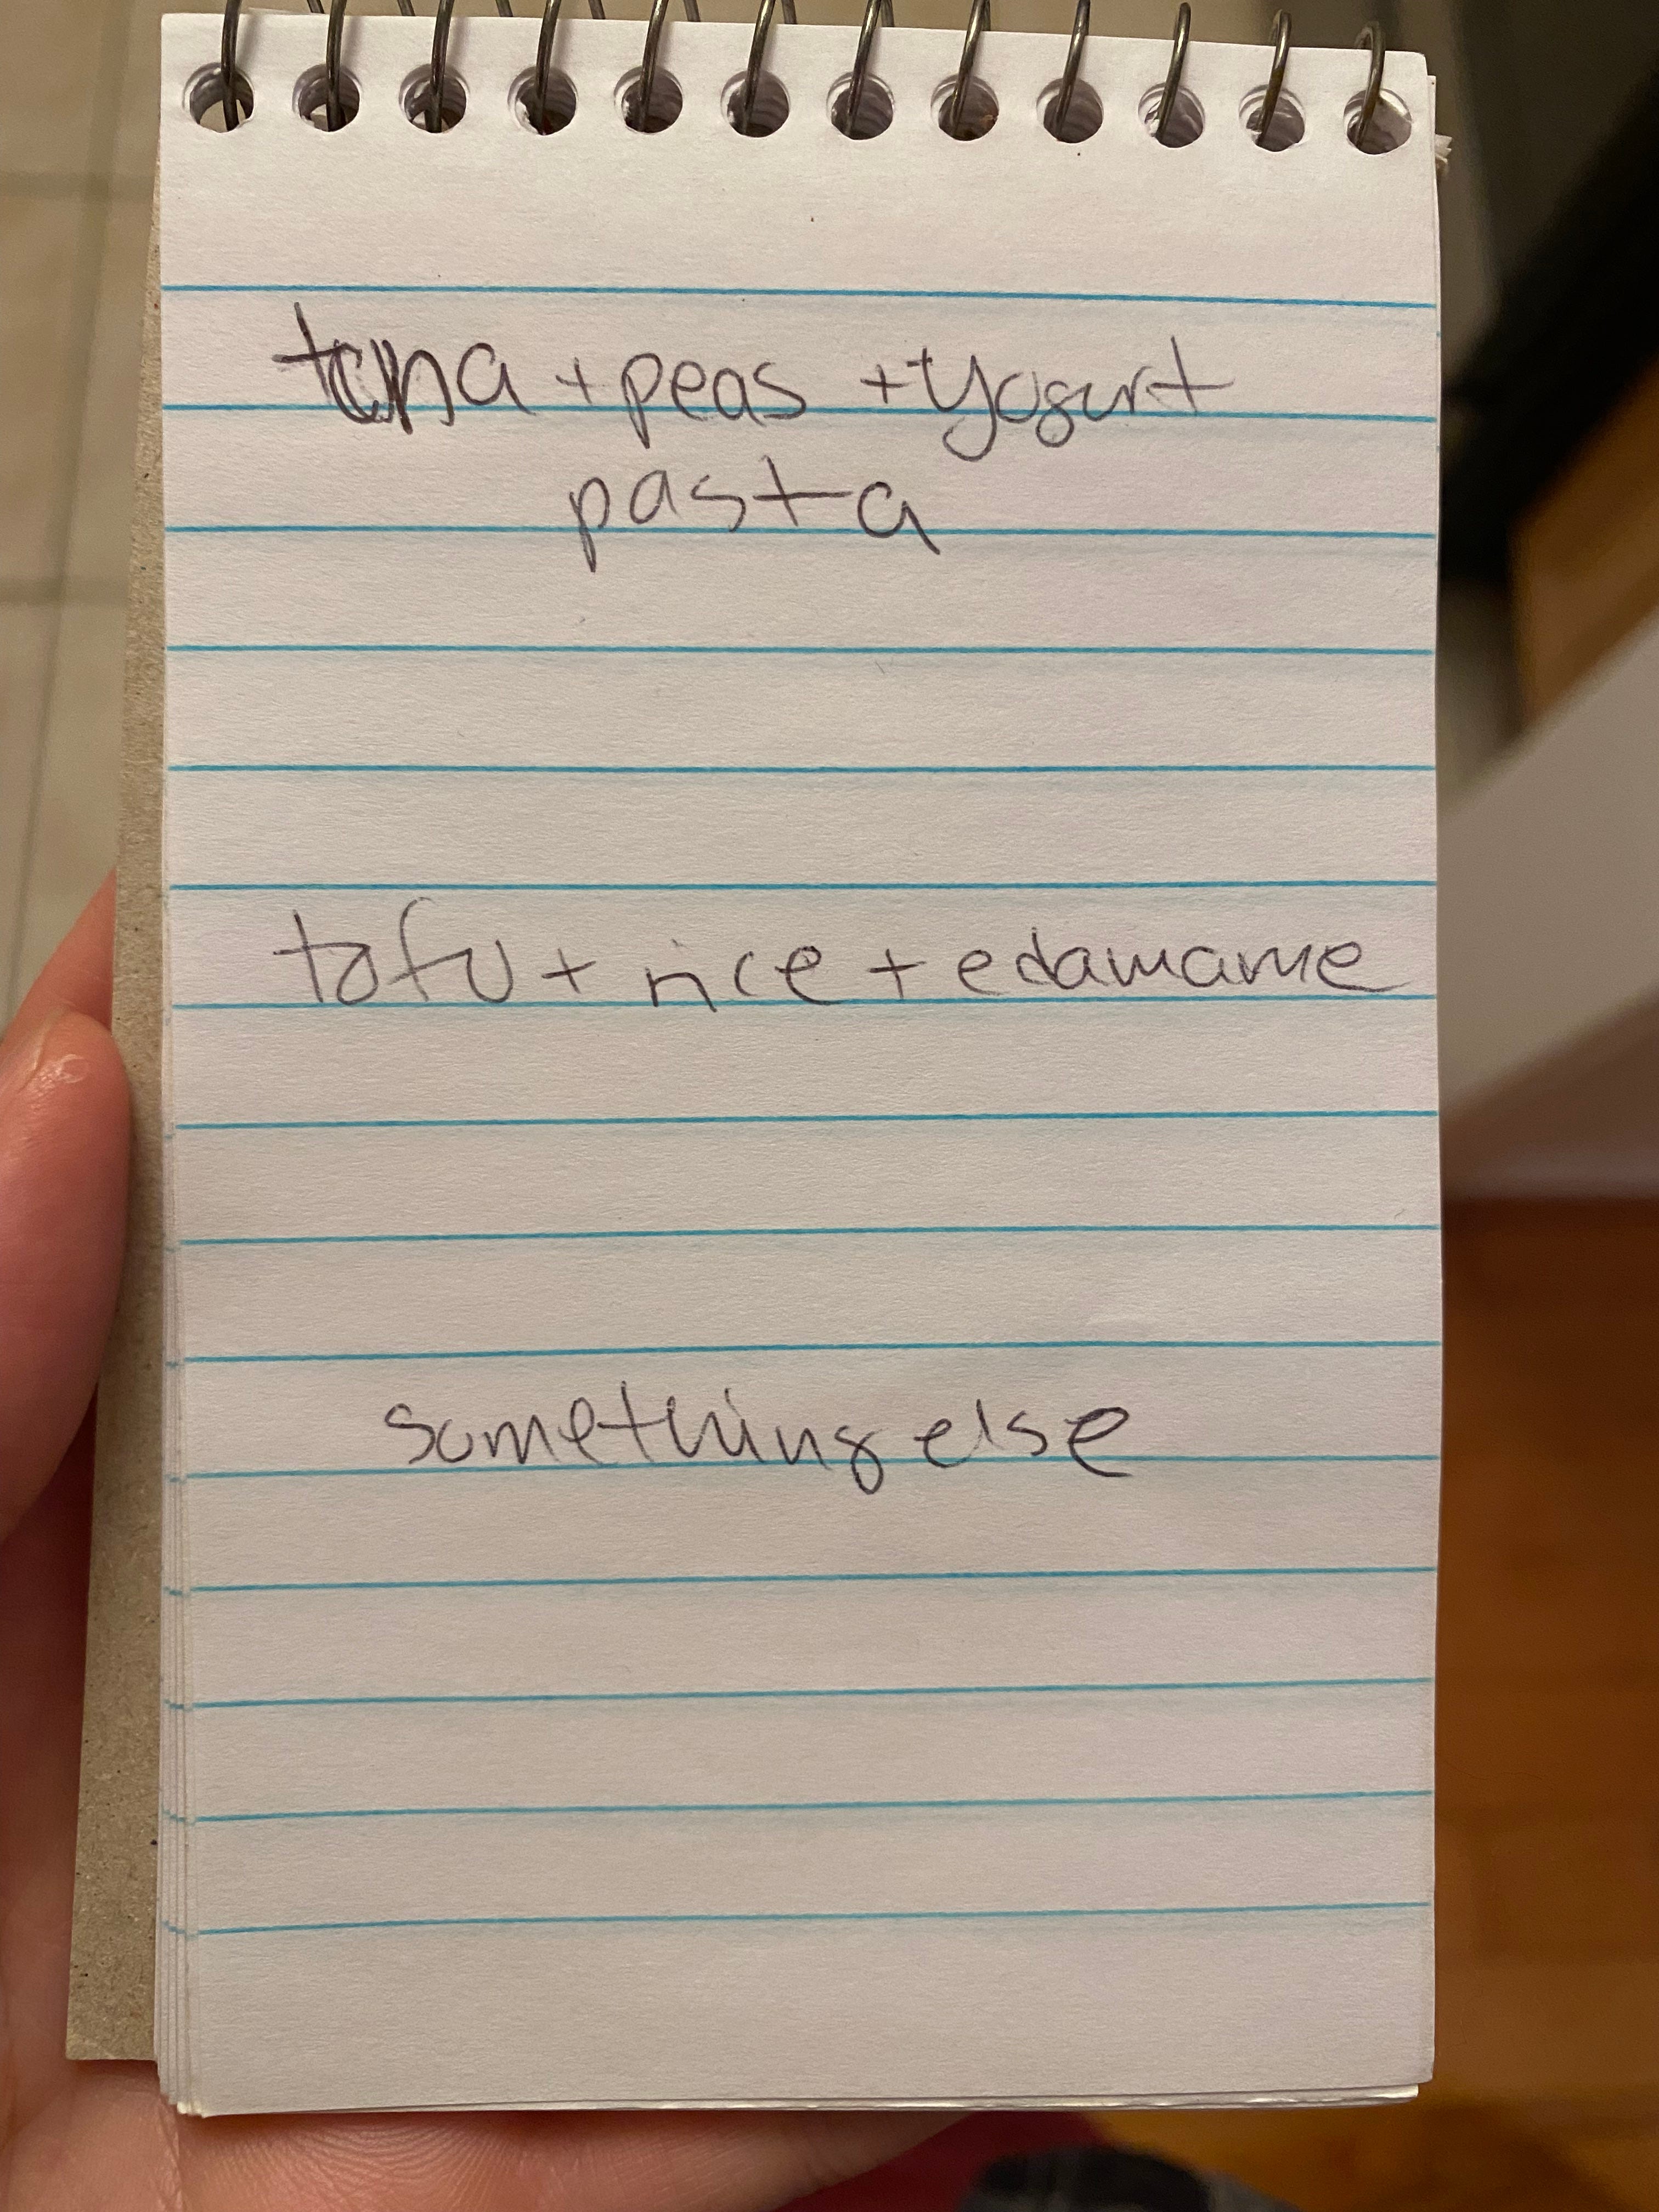 tuna + peas + yogurt
pasta
tofu + rice + edamame
something else